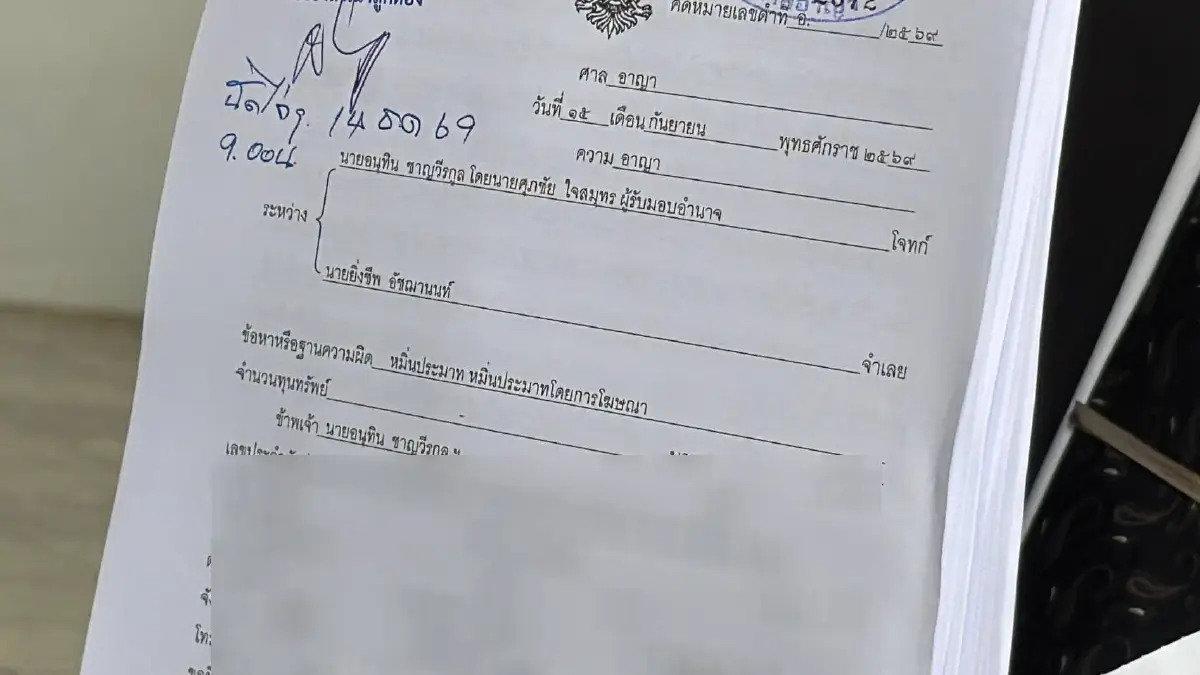 คดีหมายเลขดำที่ อ. /๒๕๖๙
ศาล อาญา
วันที่ ๑๕ เดือน กันยายน พุทธศักราช ๒๕๖๙
ความ อาญา
14 ธค 69
9.00น.
ระหว่าง
นายอนุทิน ชาญวีรกูล โดยนายศุภชัย ใจสมุทร ผู้รับมอบอำนาจ
โจทก์
นายยิ่งชีพ อัชฌานนท์
จำเลย
ข้อหาหรือฐานความผิด หมิ่นประมาท หมิ่นประมาทโดยการโฆษณา
จำนวนทุนทรัพย์ -
ข้าพเจ้า นายอนุทิน ชาญวีรกูล